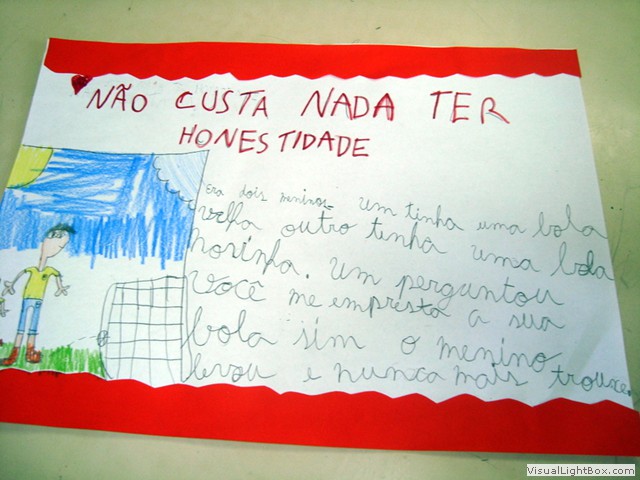 NÃO CUSTA NADA TER
HONESTIDADE
Era dois meninos um tinha uma bola
velha outro tinha uma bola
novinha. um perguntou
você me empresta a sua
bola sim o menino
levou e nunca mais trouxe.
VisualLightBox.com